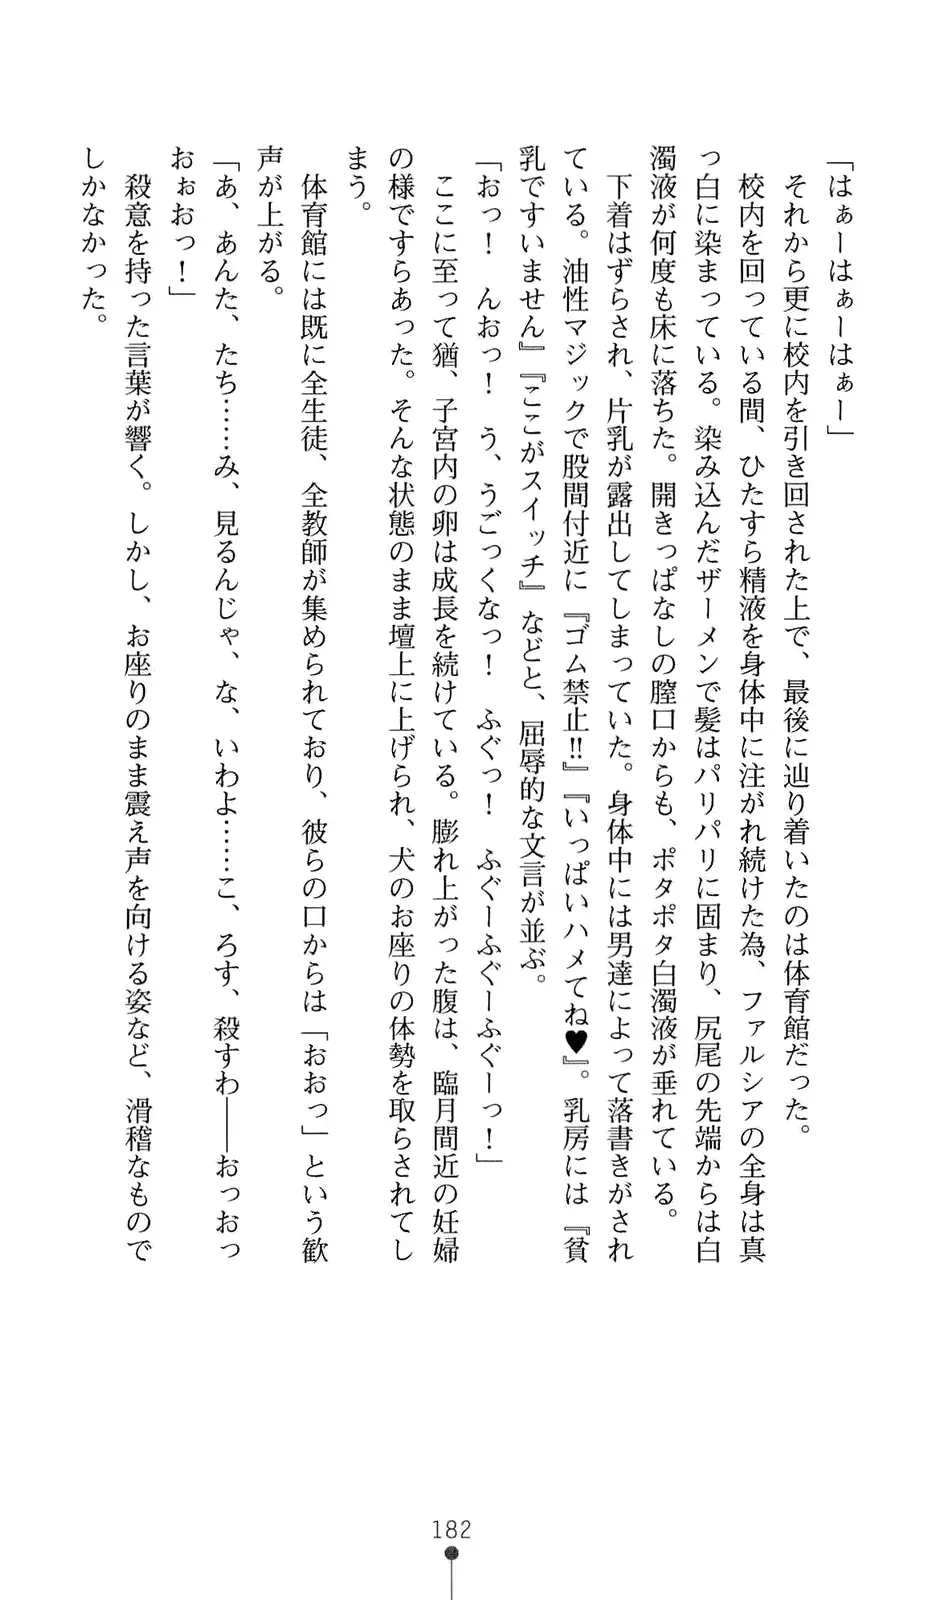 「はぁーはぁーはぁー」
　それから更に校内を引き回された上で、最後に辿り着いたのは体育館だった。
　校内を回っている間、ひたすら精液を身体中に注がれ続けた為、ファルシアの全身は真
っ白に染まっている。染み込んだザーメンで髪はパリパリに固まり、尻尾の先端からは白
濁液が何度も床に落ちた。開きっぱなしの膣口からも、ポタポタ白濁液が垂れている。
　下着はずらされ、片乳が露出してしまっていた。身体中には男達によって落書きがされ
ている。油性マジックで股間付近に『ゴム禁止!!』『いっぱいハメてね♥』。乳房には『貧
乳ですいません』『ここがスイッチ』などと、屈辱的な文言が並ぶ。
「おっ！　んおっ！　う、うごっくなっ！　ふぐっ！　ふぐーふぐーふぐーっ！」
　ここに至って猶、子宮内の卵は成長を続けている。膨れ上がった腹は、臨月間近の妊婦
の様ですらあった。そんな状態のまま壇上に上げられ、犬のお座りの体勢を取らされてし
まう。
　体育館には既に全生徒、全教師が集められており、彼らの口からは「おおっ」という歓
声が上がる。
「あ、あんた、たち……み、見るんじゃ、な、いわよ……こ、ろす、殺すわ――おっおっ
おぉおっ！」
　殺意を持った言葉が響く。しかし、お座りのまま震え声を向ける姿など、滑稽なもので
しかなかった。
182